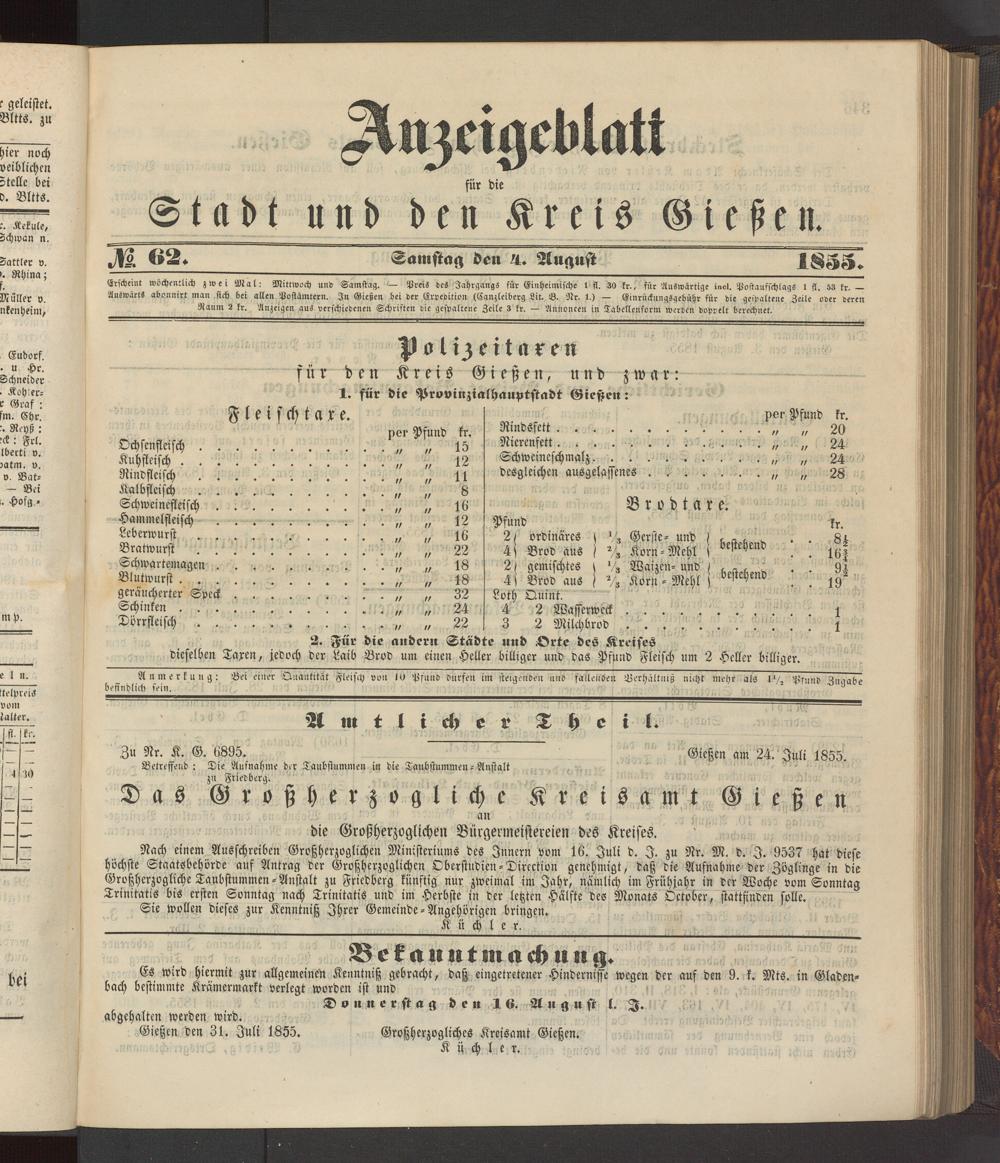 Anzeigeblatt
für die
Stadt und den Kreis Gießen.
№ 62. Samstag den 4. August 1855.
Erscheint wöchentlich zwei Mal: Mittwoch und Samstag. — Preis des Jahrgangs für Einheimische 1 fl. 30 kr., für Auswärtige incl. Postaufschlags 1 fl. 53 kr. —
Auswärts abonnirt man sich bei allen Postämtern. In Gießen bei der Expedition (Canzleiberg Lit. B. Nr. 1.) — Einrückungsgebühr für die gespaltene Zeile oder deren
Raum 2 kr. Anzeigen aus verschiedenen Schriften die gespaltene Zeile 3 kr. — Annoncen in Tabellenform werden doppelt berechnet.
Polizeitaxen
für den Kreis Gießen, und zwar:
1. für die Provinzialhauptstadt Gießen:
Fleischtaxe.
per Pfund kr.
Ochsenfleisch . . . „ „ 15
Kuhfleisch . . . „ „ 12
Rindfleisch . . . „ „ 11
Kalbfleisch . . . „ „ 8
Schweinefleisch . . . „ „ 16
Hammelfleisch . . . „ „ 12
Leberwurst . . . „ „ 16
Bratwurst . . . „ „ 22
Schwartemagen . . . „ „ 18
Blutwurst . . . „ „ 18
geräucherter Speck . . . „ „ 32
Schinken . . . „ „ 24
Dörrfleisch . . . „ „ 22
per Pfund kr.
Rindsfett . . . „ „ 20
Nierenfett . . . „ „ 24
Schweineschmalz . . . „ „ 24
desgleichen ausgelassenes . . . „ „ 28
Brodtaxe.
Pfund kr.
2 ordinäres 1/3 Gerste- und bestehend . . 8½
4 Brod aus 2/3 Korn-Mehl . . 16¾
2 gemischtes 1/3 Waizen- und bestehend . . 9½
4 Brod aus 2/3 Korn-Mehl . . 19
Loth Quint.
4 2 Wasserweck . . . 1
3 2 Milchbrod . . . 1
2. Für die andern Städte und Orte des Kreises
dieselben Taxen, jedoch der Laib Brod um einen Heller billiger und das Pfund Fleisch um 2 Heller billiger.
Anmerkung: Bei einer Quantität Fleisch von 10 Pfund dürfen im steigenden und fallenden Verhältniß nicht mehr als 1½ Pfund Zugabe
befindlich sein.
Amtlicher Theil.
Zu Nr. K. G. 6895. Gießen am 24. Juli 1855.
Betreffend: Die Aufnahme der Taubstummen in die Taubstummen-Anstalt
zu Friedberg.
Das Großherzogliche Kreisamt Gießen
an
die Großherzoglichen Bürgermeistereien des Kreises.
Nach einem Ausschreiben Großherzoglichen Ministeriums des Innern vom 16. Juli d. J. zu Nr. M. d. J. 9537 hat diese
höchste Staatsbehörde auf Antrag der Großherzoglichen Oberstudien-Direction genehmigt, daß die Aufnahme der Zöglinge in die
Großherzogliche Taubstummen-Anstalt zu Friedberg künftig nur zweimal im Jahr, nämlich im Frühjahr in der Woche vom Sonntag
Trinitatis bis ersten Sonntag nach Trinitatis und im Herbste in der letzten Hälfte des Monats October, stattfinden solle.
Sie wollen dieses zur Kenntniß Ihrer Gemeinde-Angehörigen bringen.
Küchler.
Bekanntmachung.
Es wird hiermit zur allgemeinen Kenntniß gebracht, daß eingetretener Hindernisse wegen der auf den 9. k. Mts. in Gladen-
bach bestimmte Krämermarkt verlegt worden ist und
Donnerstag den 16. August l. J.
abgehalten werden wird.
Gießen den 31. Juli 1855. Großherzogliches Kreisamt Gießen.
Küchler.